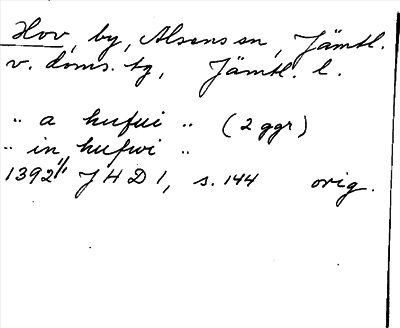 Hov, by, Alsens sn, Jämtl.
v. doms. tg, Jämtl. l.
" a hufui " (2 ggr)
" in hufwi "
1392 1/1 JHD 1, s. 144 orig.